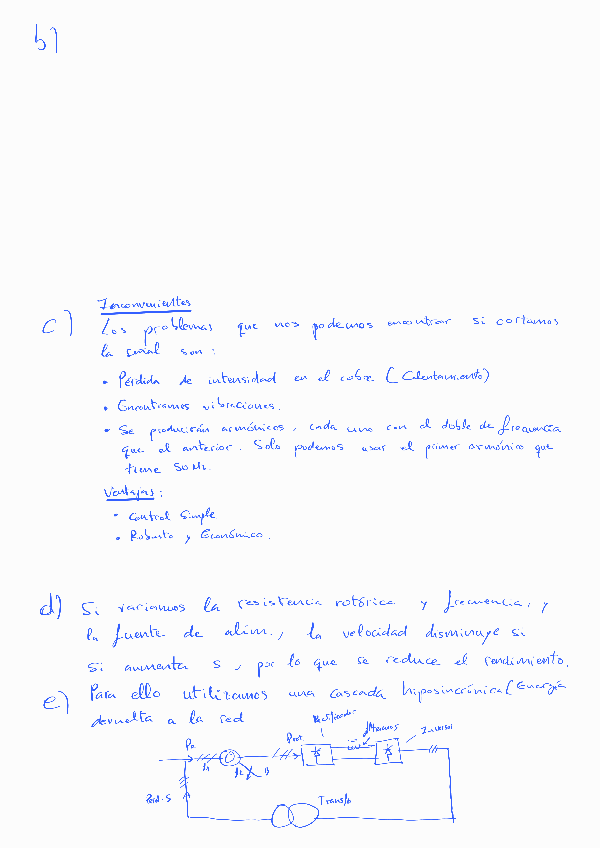 b)
Inconvenientes
c) Los problemas que nos podemos encontrar si cortamos
la señal son:
• Pérdida de intensidad en el cobre (Calentamiento)
• Encontramos vibraciones.
• Se producirán armónicos, cada uno con el doble de frecuencia
que el anterior. Solo podemos usar el primer armónico que
tiene 50 Hz.
Ventajas:
• Control Simple
• Robusto y Económico.
d) Si variamos la resistencia rotórica y frecuencia, y
la fuente de alim., la velocidad disminuye si
si aumenta s, por lo que se reduce el rendimiento.
e) Para ello utilizamos una cascada hiposincrónica (Energía
devuelta a la red
Rectificador
Inversor
Trafo